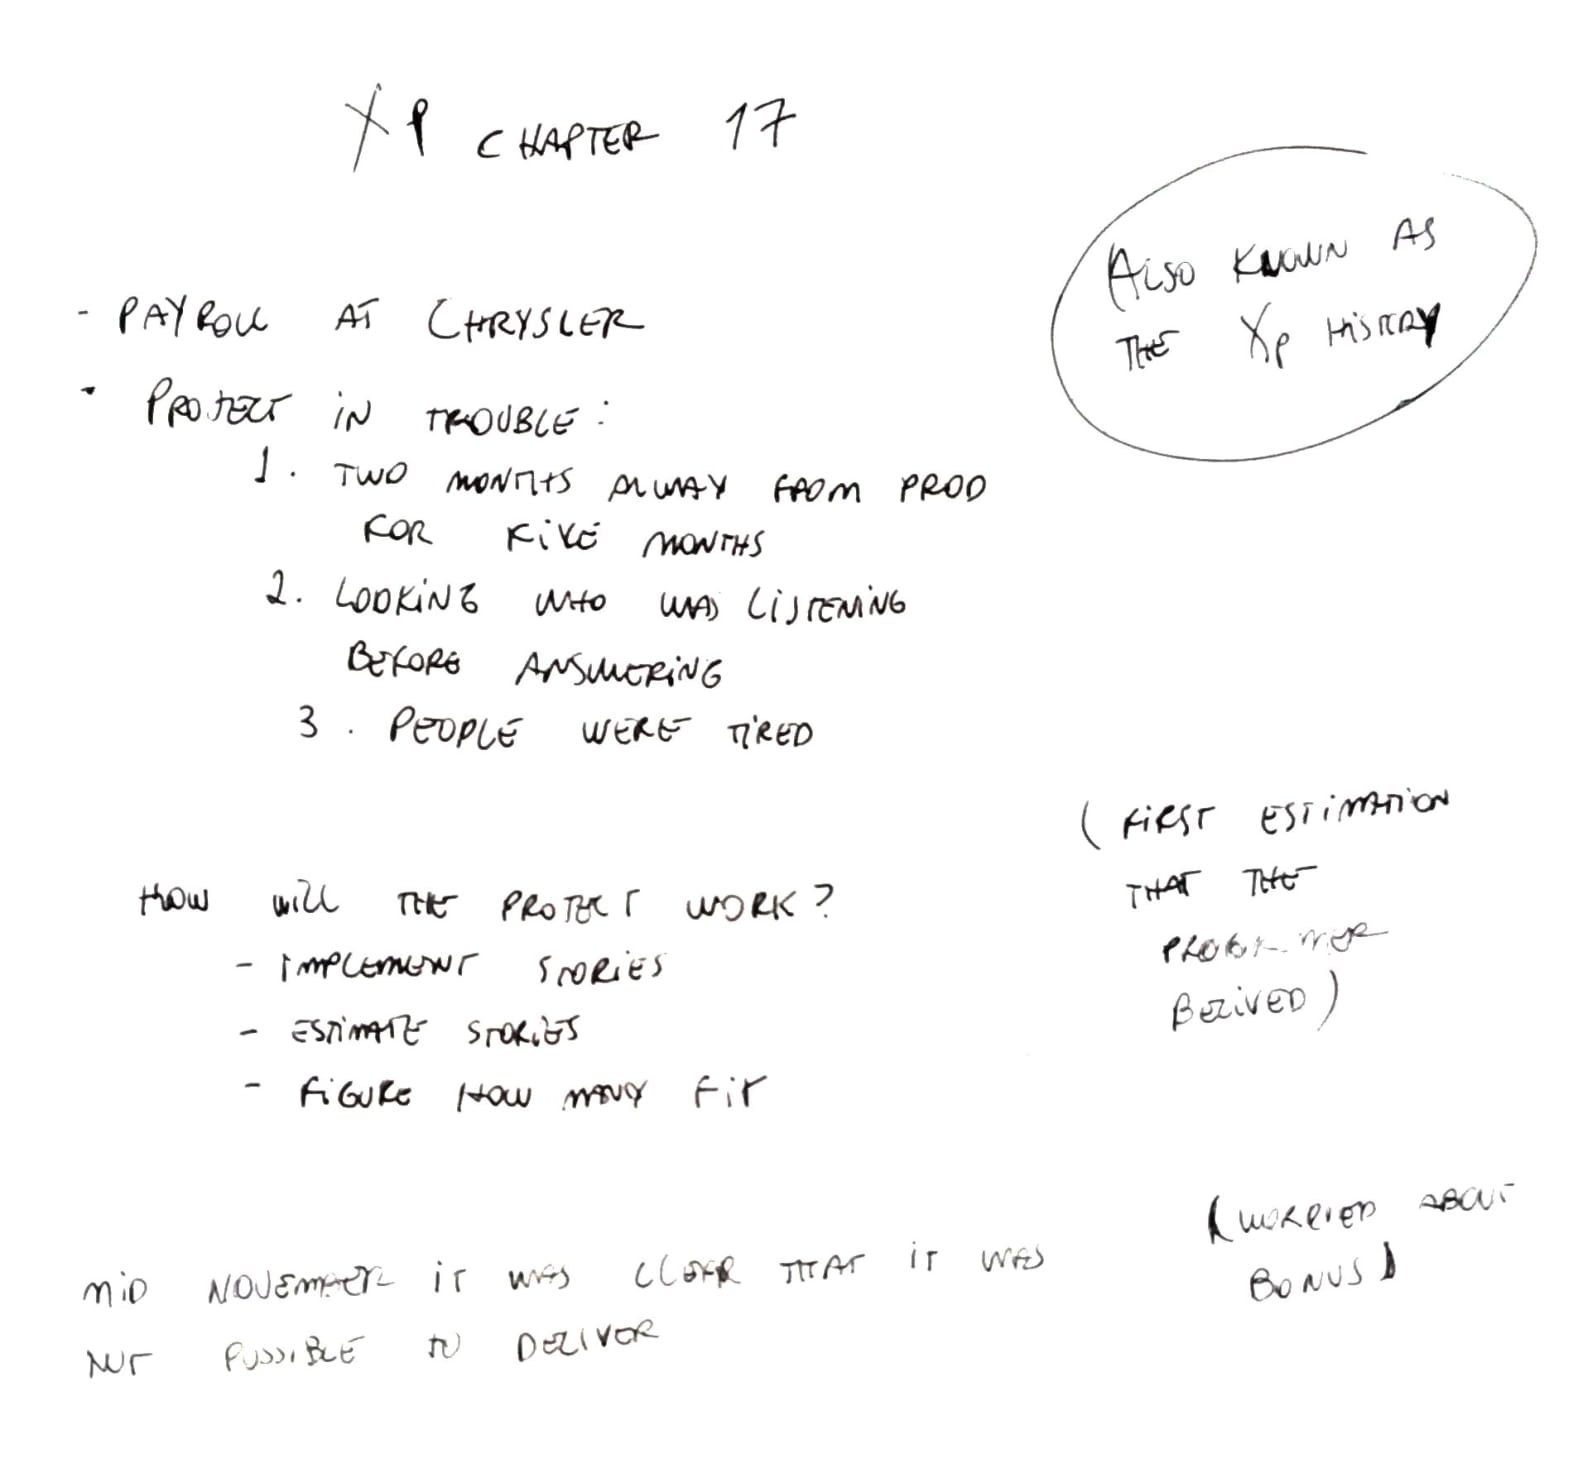 XP CHAPTER 17
(ALSO KNOWN AS
THE XP HISTORY
- PAYROLL AT CHRYSLER
- PROJECT IN TROUBLE:
1. TWO MONTHS AWAY FROM PROD
FOR FIVE MONTHS
2. LOOKING WHO WAS LISTENING
BEFORE ANSWERING
3. PEOPLE WERE TIRED
(FIRST ESTIMATION
THAT THE
BELIVED)
HOW WILL THE PROJECT WORK?
- IMPLEMENT STORIES
- ESTIMATE STORIES
- FIGURE HOW MANY FIT
(WORRIED ABOUT
BONUS)
MID NOVEMBER IT WAS CLEAR THAT IT WAS
NOT POSSIBLE TO DELIVER